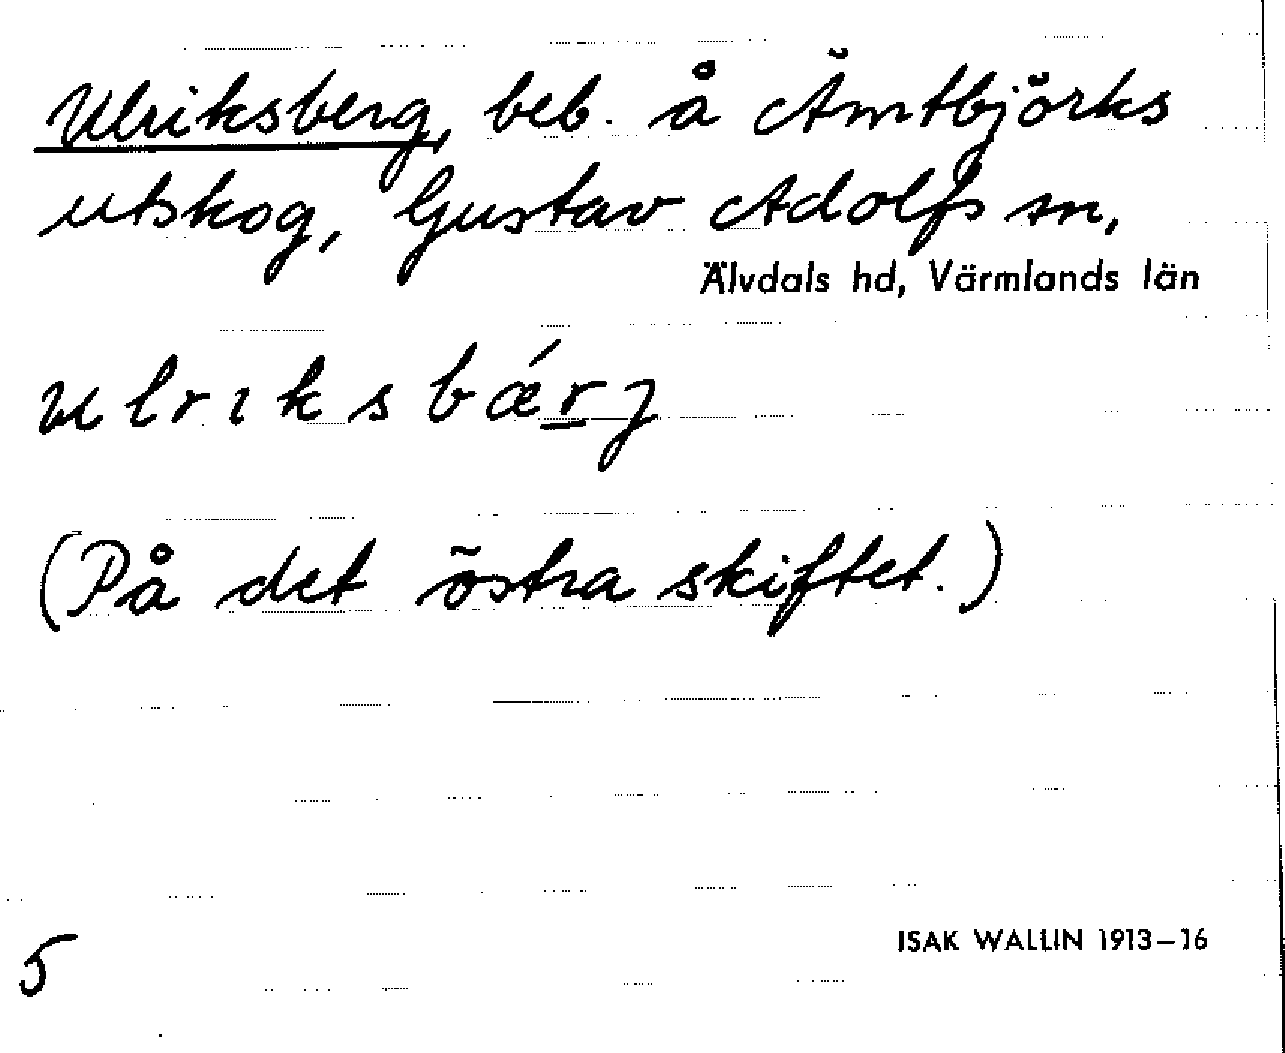 Ulriksberg, beb. å Ämtbjörks
utskog, Gustav Adolfs sn,
Älvdals hd, Värmlands län
ulrıksbǽr̲ȷ
(På det östra skiftet.)
5
ISAK WALLIN 1913–16